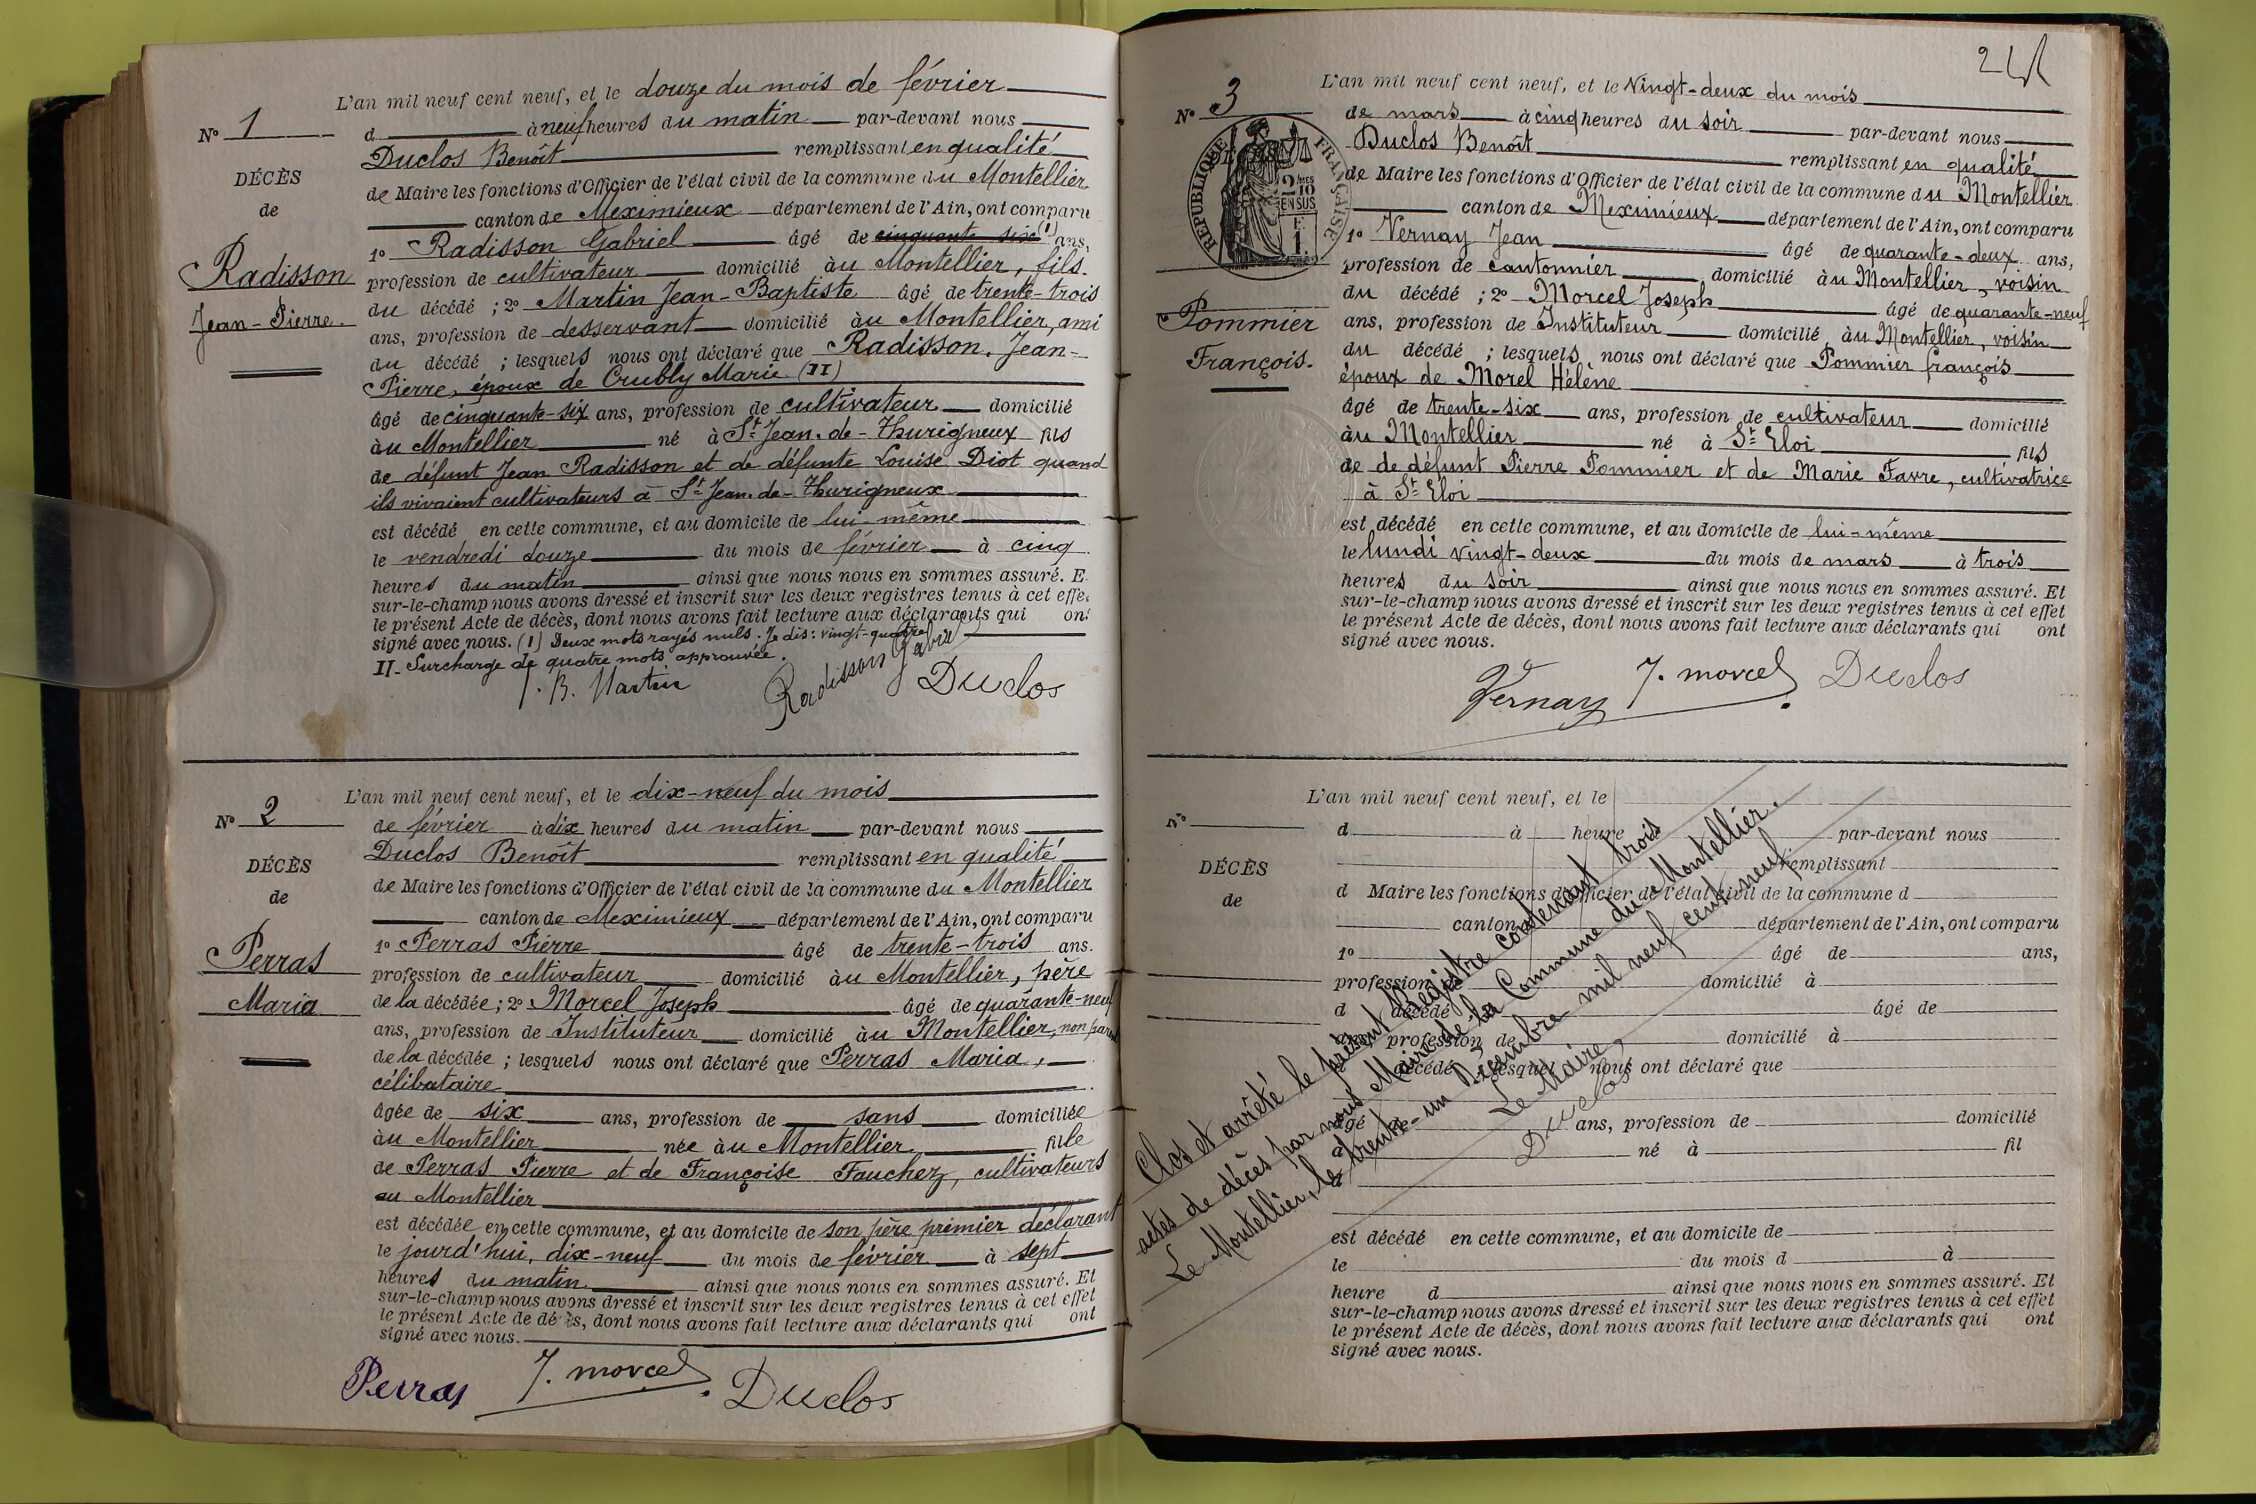 L'an mil neuf cent neuf, et le douze du mois de février
N° 1
d à neuf heures du matin par-devant nous
Duclos Benoît remplissant en qualité
DÉCÈS
de Maire les fonctions d'Officier de l'état civil de la commune du Montellier
de
canton de Meximieux département de l'Ain, ont comparu
1° Radisson Gabriel âgé de cinquante six (1) ans,
Radisson
profession de cultivateur domicilié àu Montellier, fils
du décédé ; 2° Martin Jean-Baptiste âgé de trente-trois
Jean-Pierre.
ans, profession de desservant domicilié àu Montellier, ami
du décédé ; lesquels nous ont déclaré que Radisson. Jean-
Pierre, époux de Crubly Marie (II)
âgé de cinquante-six ans, profession de cultivateur domicilié
àu Montellier né à St Jean-de-Thurigneux fils
de défunt Jean Radisson et de défunte Louise Diot quand
ils vivaient cultivateurs à St Jean-de-Thurigneux
est décédé en cette commune, et au domicile de lui-même
le vendredi douze du mois de février à cinq
heures du matin ainsi que nous nous en sommes assuré. E
sur-le-champ nous avons dressé et inscrit sur les deux registres tenus à cet effe
le présent Acte de décès, dont nous avons fait lecture aux déclarants qui on
signé avec nous. (1) Deux mots rayés nuls. Je dis : vingt-quatre
II- Surcharge de quatre mots approuvée.
J. B. Martin Radisson Gabriel Duclos
L'an mil neuf cent neuf, et le dix-neuf du mois
N° 2
de février à dix heures du matin par-devant nous
Duclos Benoît remplissant en qualité
DÉCÈS
de Maire les fonctions d'Officier de l'état civil de la commune du Montellier
de
canton de Meximieux département de l'Ain, ont comparu
1° Perras Pierre âgé de trente-trois ans.
Perras
profession de cultivateur domicilié àu Montellier, père
Maria
de la décédée ; 2° Morcel Joseph âgé de quarante-neuf
ans, profession de Instituteur domicilié àu Montellier, non parent
de la décédée ; lesquels nous ont déclaré que Perras Maria,
célibataire
âgée de six ans, profession de sans domiciliée
àu Montellier née àu Montellier fille
de Perras Pierre et de Françoise Fauchez, cultivateurs
au Montellier
est décédée en cette commune, et au domicile de son père premier déclarant
le jourd'hui, dix-neuf du mois de février à sept
heures du matin ainsi que nous nous en sommes assuré. Et
sur-le-champ nous avons dressé et inscrit sur les deux registres tenus à cet effet
le présent Acte de décès, dont nous avons fait lecture aux déclarants qui ont
signé avec nous.
Perras J. morcel Duclos
L'an mil neuf cent neuf, et le Vingt-deux du mois
N° 3
de mars à cinq heures du soir par-devant nous
RÉPUBLIQUE FRANÇAISE
2/10MES EN SUS
F 1
Duclos Benoît remplissant en qualité
de Maire les fonctions d'Officier de l'état civil de la commune du Montellier
canton de Meximieux département de l'Ain, ont comparu
1° Vernay Jean âgé de quarante-deux ans,
profession de cantonnier domicilié àu Montellier, voisin
du décédé ; 2° Morcel Joseph âgé de quarante-neuf
Pommier
ans, profession de Instituteur domicilié àu Montellier, voisin
François.
du décédé ; lesquels nous ont déclaré que Pommier françois
époux de Morel Hélène
âgé de trente-six ans, profession de cultivateur domicilié
àu Montellier né à St Eloi fils
de de défunt Pierre Pommier et de Marie Favre, cultivatrice
à St Eloi
est décédé en cette commune, et au domicile de lui-même
le lundi vingt-deux du mois de mars à trois
heures du soir ainsi que nous nous en sommes assuré. Et
sur-le-champ nous avons dressé et inscrit sur les deux registres tenus à cet effet
le présent Acte de décès, dont nous avons fait lecture aux déclarants qui ont
signé avec nous.
Vernay J. morcel Duclos
L'an mil neuf cent neuf, et le
N°
d à heure d par-devant nous
remplissant
DÉCÈS
d Maire les fonctions d'Officier de l'état civil de la commune d
de
canton département de l'Ain, ont comparu
1° âgé de ans,
profession de domicilié à
d décédé âgé de
ans, profession de domicilié à
d décédé ; lesquel nous ont déclaré que
âgé de ans, profession de domicilié
à né à fil
d
est décédé en cette commune, et au domicile de
le du mois d à
heure d ainsi que nous nous en sommes assuré. Et
sur-le-champ nous avons dressé et inscrit sur les deux registres tenus à cet effet
le présent Acte de décès, dont nous avons fait lecture aux déclarants qui ont
signé avec nous.
Clos et arrêté le présent Registre contenant trois
actes de décès par nous Maire de la Commune du Montellier.
Le Montellier, le trente-un Décembre mil neuf cent neuf
Le Maire,
Duclos